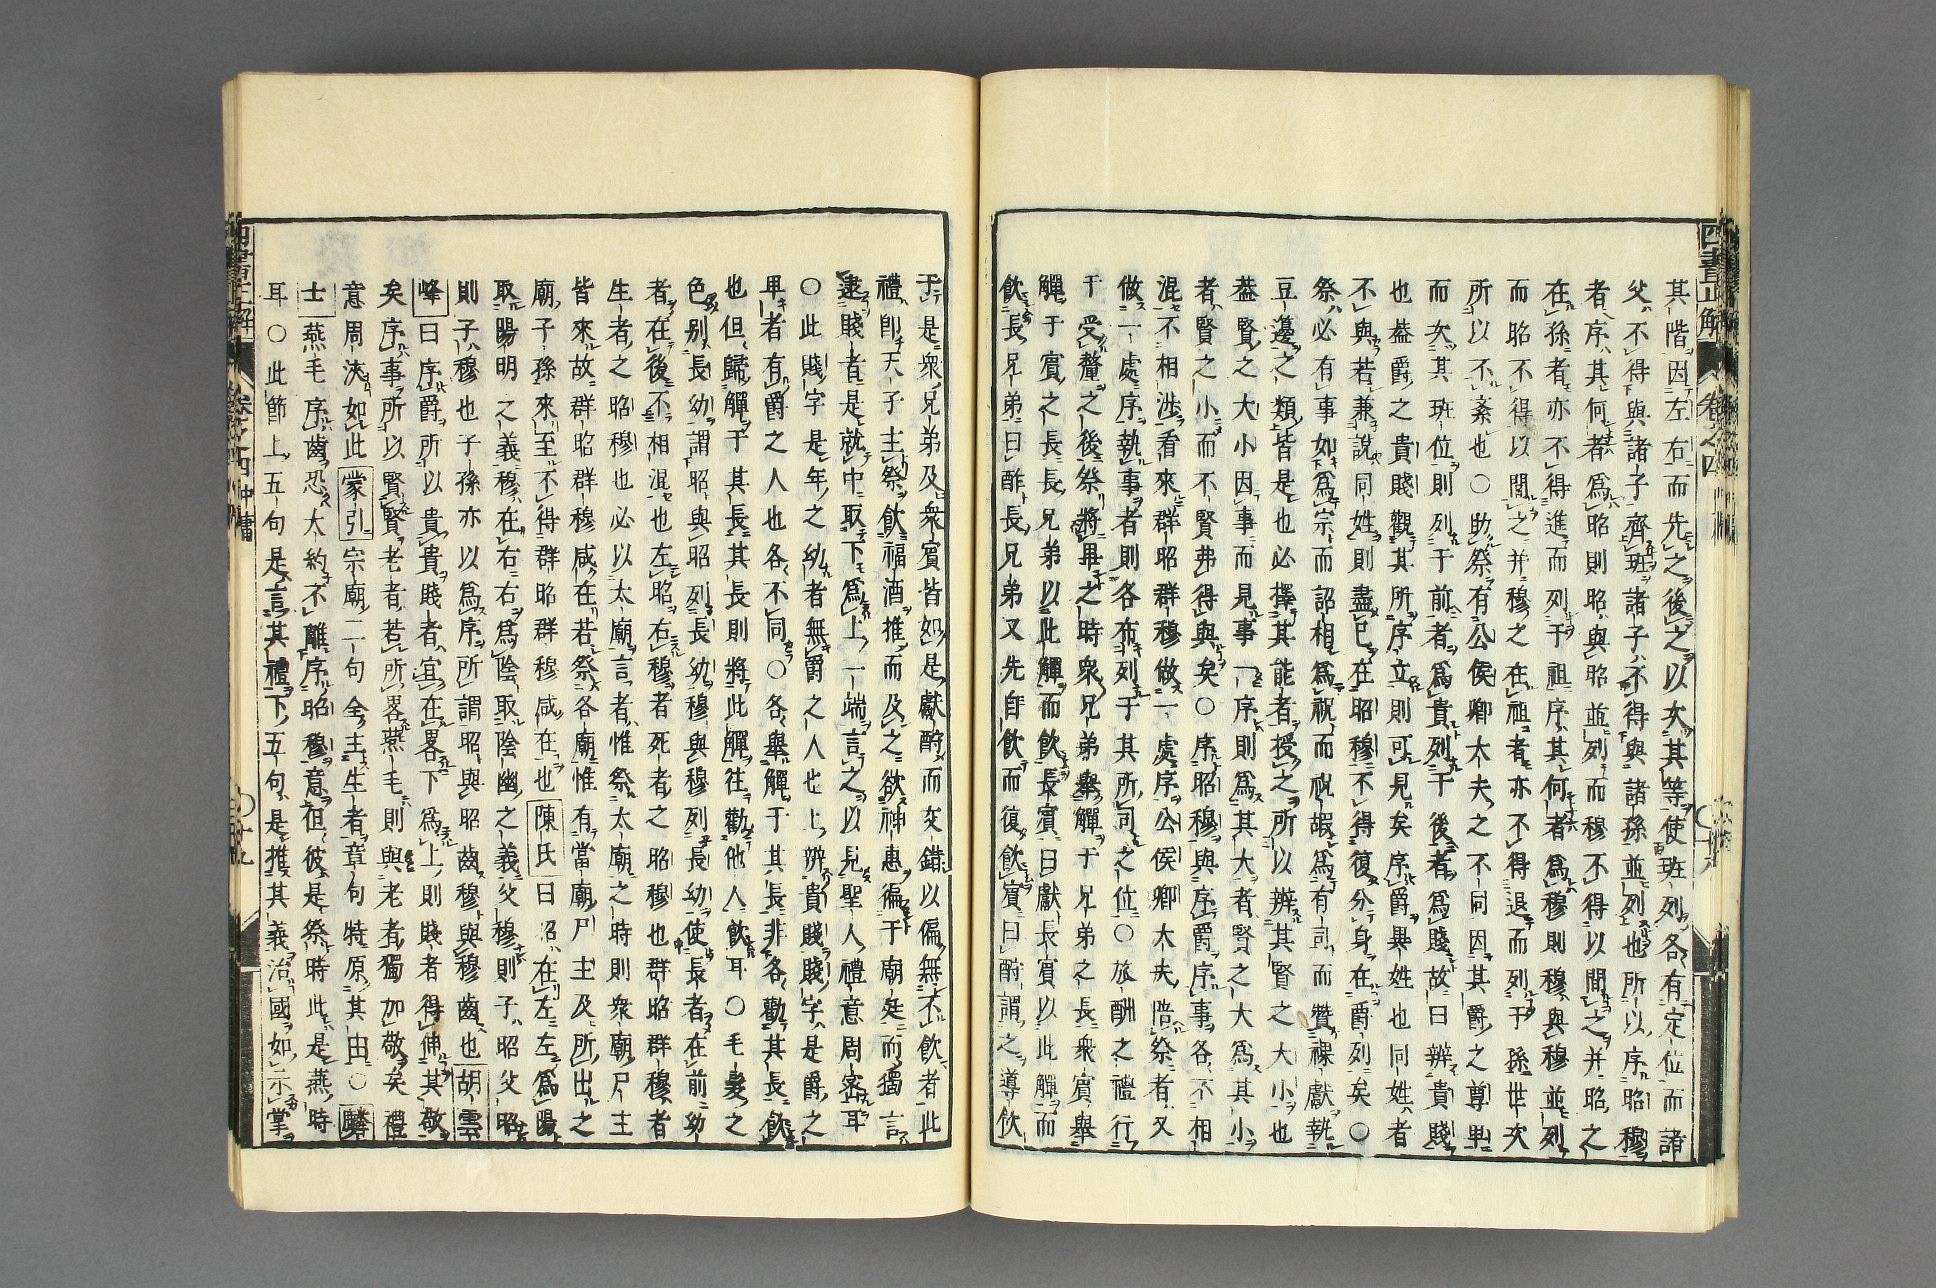 其階因左右而先之後之以次其等使班列各有定位而諸
父不得與諸子齊班諸子不得與諸孫並列也所以序昭穆
者序其何者爲昭則昭與昭並列而穆不得以間之并昭之
在孫者亦不得進而列于祖序其何者爲穆則穆與穆並列
而昭不得以間之并穆之在祖者亦不得退而列于孫世次
所以不紊也○助祭有公侯卿大夫之不同因其爵之尊卑
而次其班位則列于前者爲貴列于後者爲賤故曰辨貴賤
也葢爵之貴賤觀其所序立則可見矣序爵異姓也同姓者
不與若兼說同姓則盡已在昭穆不得復分身在爵列矣○
祭必有事如爲宗而詔相爲祝而祝嘏爲有司而贊祼獻執
豆籩之類皆是也必擇其能者授之所以辨其賢之大小也
葢賢之大小因事而見事一序則爲其大者賢之大爲其小
者賢之小而不賢弗得與矣○序昭穆與序爵序事各不相
混不相涉看來群昭群穆做一處序公侯卿大夫陪祭者又
做一處序執事者則各布列于其所司之位○旅酬之禮行
于受釐之後祭將畢之時衆兄弟舉觶于兄弟之長衆賓舉
觶于賓之長長兄弟以此觶而飲長賓曰獻長賓以此觶而
飲長兄弟曰酢長兄弟又先自飲而復飲賓曰酧謂之導飲
于是衆兄弟及衆賓皆如是獻酧而交錯以徧無不飲者此
禮卽天子主祭飲福酒推而及之欲神惠徧于廟廷而獨言
逮賤者是就中取下爲上一端言之以見聖人禮意周密耳
○此賤字是年之幼者無爵之人也上辨貴賤賤字是爵之
卑者有爵之人也各不同○各舉觶于其長非各勸其長飲
也但歸觶于其長其長則將此觶往勸他人飲耳○毛髮之
色别長幼謂昭與昭列長幼穆與穆列長幼使長者在前幼
者在後不相混也左昭右穆者死者之昭穆也群昭群穆者
生者之昭穆也必以太廟言者惟祭太廟之時則衆廟尸主
皆來故群昭群穆咸在若祭各廟惟有當廟尸主及所出之
廟子孫來至不得群昭群穆咸在也陳氏曰昭在左左爲陽
取陽明之義穆在右右爲陰取陰幽之義父穆則子昭父昭
則子穆也子孫亦以爲序所謂昭與昭齒穆與穆齒也胡雲
峰曰序爵所以貴貴賤者宜在畧下爲上則賤者得伸其敬
矣序事所以賢賢老者若所畧燕毛則與老者獨加敬矣禮
意周浹如此蒙引宗廟二句全主生者章句特原其由○麟
士燕毛序齒恐大約不離序昭穆意但彼是祭時此是燕時
耳○此節上五句是言其禮下五句是推其義治國如示掌
四書正解
卷之四
中庸
十九
四書正解
卷之四